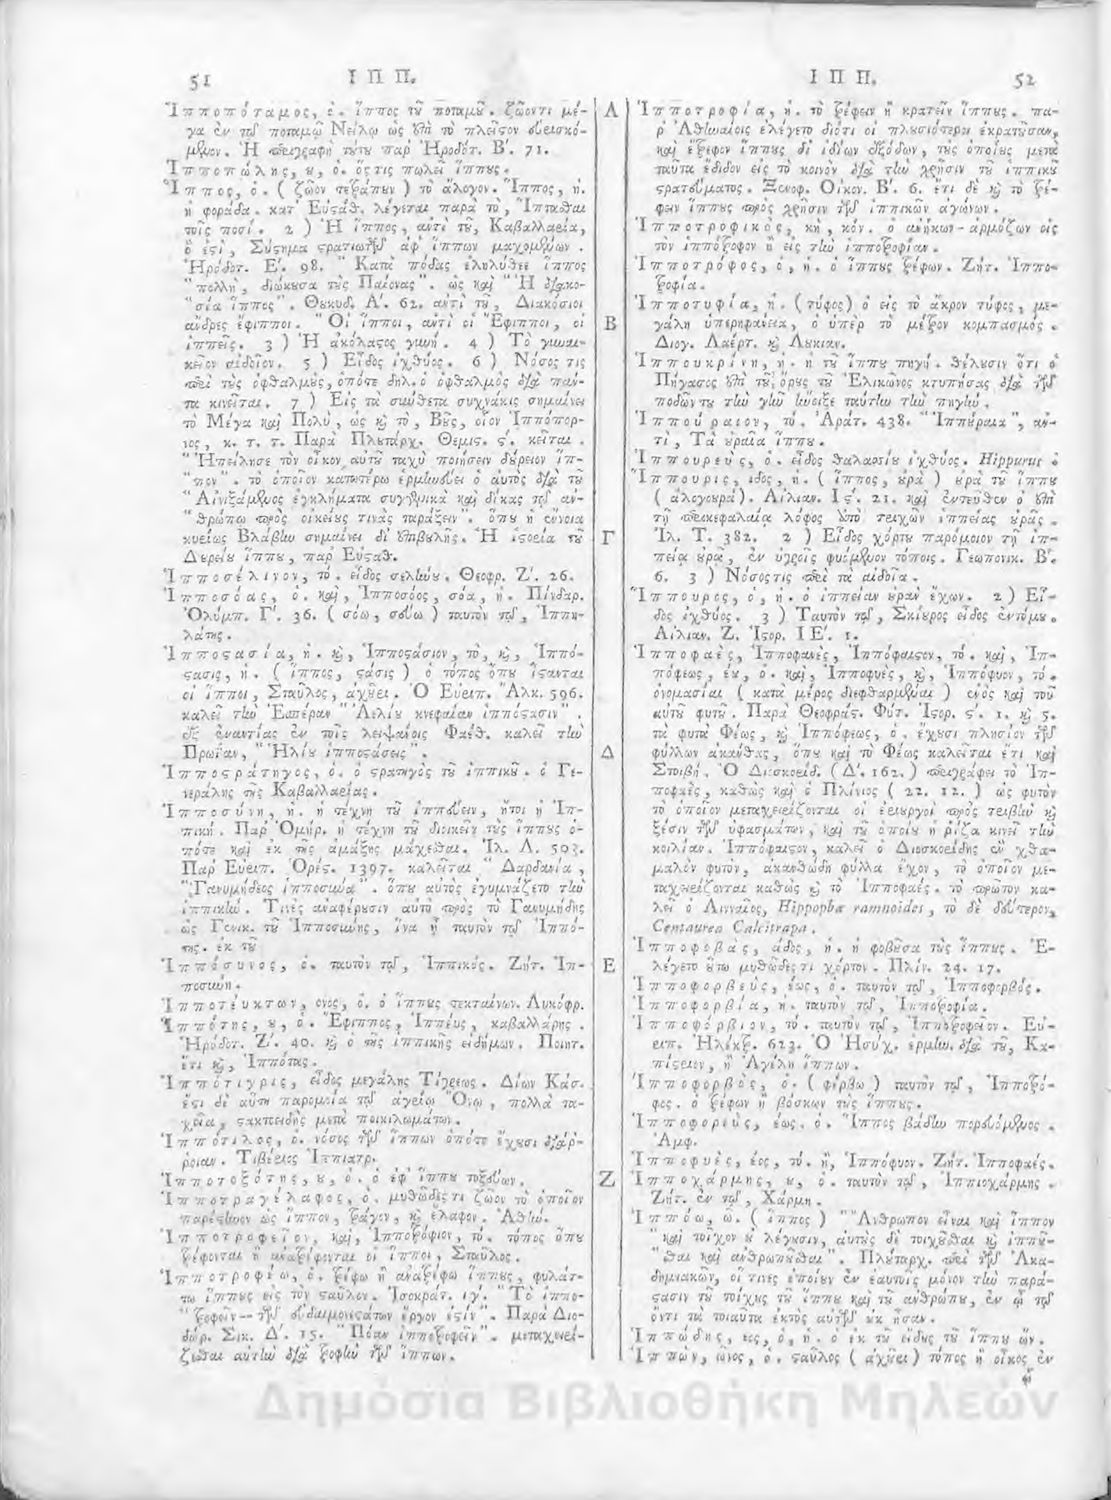 51 Ι Π Π.
Ἱπποπόταμος, ὁ. ἵππος τοῦ ποταμοῦ. ζῶόν τι μέ-
γα ἐν τῷ ποταμῷ Νείλῳ ὡς ἐπὶ τὸ πλεῖστον εὑρισκό-
μενον. Ἡ περιγραφὴ τούτου παρ' Ἡροδότ. Β'. 71.
Ἱπποπώλης, ου, ὁ. ὅςτις πωλεῖ ἵππους.
Ἵππος, ὁ. ( ζῶον τετράπουν ) τὸ ἄλογον. Ἵππος, ἡ.
ἡ φοράδα. κατ' Εὐστάθ. λέγεται παρὰ τὸ, Ἵπτασθαι
τοῖς ποσί. 2 ) Ἡ ἵππος, ἀντὶ τοῦ, Καβαλλαρία,
ὅ ἐστι, Σύστημα στρατιωτῶν ἀφ' ἵππων μαχομένων.
Ἡρόδοτ. Ε'. 98. " Κατὰ πόδας ἐληλύθεε ἵππος
" πολλὴ, διώκουσα τοὺς Παίονας ". ὡς καὶ " Ἡ διακο-
" σία ἵππος ". Θουκυδ. Α'. 62. ἀντὶ τοῦ, Διακόσιοι
ἄνδρες ἔφιπποι. " Οἱ ἵπποι, ἀντὶ οἱ Ἔφιπποι, οἱ
ἱππεῖς. 3 ) Ἡ ἀκόλαστος γυνή. 4 ) Τὸ γυναι-
κεῖον αἰδοῖον. 5 ) Εἶδος ἰχθύος. 6 ) Νόσος τις
περὶ τοὺς ὀφθαλμοὺς, ὁπότε δηλ. ὁ ὀφθαλμὸς διὰ παν-
τὰ κινεῖται. 7 ) Εἰς τὰ σύνθετα συχνάκις σημαίνει
τὸ Μέγα καὶ Πολὺ, ὡς καὶ τὸ, Βοῦς, οἷον Ἱππόπορ-
νος, κ. τ. τ. Παρὰ Πλουτάρχ. Θεμις. ς'. κεῖται.
" Ἠπείλησε τὸν οἶκον αὐτοῦ ταχὺ ποιήσειν δούρειον ἵπ-
" πον ". τὸ ὁποῖον κατωτέρω ἑρμηνεύει ὁ αὐτὸς διὰ τοῦ
" Αἰνιξάμενος ἐγκλήματα συγγενικὰ καὶ δίκας τῷ ἀν-
" θρώπῳ πρὸς οἰκείους τινὰς ταράξειν ". ὅπου ἡ ἔννοια
κυρίως Βλάβην σημαίνει δι' ἐπιβουλῆς. Ἡ ἱστορία τοῦ
Δουρείου ἵππου, παρ' Εὐσταθ.
Ἱπποσέλινον, τό. εἶδος σελίνου. Θεοφρ. Ζ'. 26.
Ἱπποσόας, ὁ. καὶ, Ἱπποσόος, σόα, ἡ. Πίνδαρ.
Ὀλύμπ. Γ'. 36. ( σόω, σεύω ) ταυτὸν τῷ, Ἱππη-
λάτης.
Ἱπποστασία, ἡ. καὶ, Ἱπποστάσιον, τὸ, καὶ, Ἱππό-
στασις, ἡ. ( ἵππος, στάσις ) ὁ τόπος ὅπου ἵστανται
οἱ ἵπποι, Σταῦλος, ἀχούρι. Ὁ Εὐριπ. Ἄλκ. 596.
καλεῖ τὴν Ἑσπέραν " Ἀελίου κνεφαίαν ἱππόστασιν ".
ἐξ ἐναντίας ἐν τοῖς λειψάνοις Φαέθ. καλεῖ τὴν
Πρωΐαν, " Ἡλίου ἱπποστάσεις ".
Ἱπποστράτηγος, ὁ. ὁ στρατηγὸς τοῦ ἱππικοῦ. ὁ Γε-
νεράλης τῆς Καβαλλαρίας.
Ἱπποσύνη, ἡ. ἡ τέχνη τοῦ ἱππεύειν, ἤτοι ἡ Ἱπ-
πική. Παρ' Ὁμήρ. ἡ τέχνη τοῦ διοικεῖν τοὺς ἵππους ὁ-
πότε καὶ ἐκ τῆς ἁμάξης μάχεσθαι. Ἰλ. Λ. 503.
Παρ' Εὐριπ. Ὀρέστ. 1397. καλεῖται " Δαρδανία,
" Γανυμήδεος ἱπποσύνα ". ὅπου αὐτὸς ἐγυμνάζετο τὴν
ἱππικήν. Τινὲς ἀναφέρουσιν αὐτὸ πρὸς τὸ Γανυμήδης
ὡς Γενικ. τοῦ Ἱπποσύνης, ἵνα ᾖ ταυτὸν τῷ Ἱππό-
της. ἐκ τοῦ
Ἱππόσυνος, ὁ. ταυτὸν τῷ, Ἱππικός. Ζήτ. Ἱπ-
ποσύνη.
Ἱπποτέκτων, ονος, ὁ. ὁ ἵππους τεκταίνων. Λυκόφρ.
Ἱππότης, ου, ὁ. Ἔφιππος, Ἱππέυς, καβαλλάρης.
Ἡρόδοτ. Ζ'. 40. καὶ ὁ τῆς ἱππικῆς εἰδήμων. Ποιητ.
ἔτι καὶ, Ἱππότας.
Ἱππότιγρις, εἶδος μεγάλης Τίγρεως. Δίων Κάσ.
Ἱππότιλος, ὁ. νόσος τῶν ἵππων ὁπότε ἔχουσι διάρ-
ροιαν. Τιβέριος Ἱππιατρ.
Ἱπποτοξότης, ου, ὁ. ὁ ἐφ' ἵππου τοξεύων.
Ἱπποτραγέλαφος, ὁ. μυθῶδές τι ζῶον τὸ ὁποῖον
παρέστησον ὡς ἵππον, τράγον, καὶ ἔλαφον. Ἀθήν.
Ἱπποτροφεῖον, καὶ, Ἱπποτρόφιον, τό. τόπος ὅπου
τρέφονται ἢ ἀνατρέφονται οἱ ἵπποι, Σταῦλος.
Ἱπποτροφέω, ῶ. τρέφω ἢ ἀνατρέφω ἵππους, φυλάτ-
τω ἵππους εἰς τὸν σταῦλον. Ἰσοκράτ. ιγ'. " Τὸ ἱππο-
" τροφεῖν -- τῶν εὐδαιμονεστάτων ἔργον ἐστίν ". Παρὰ Διο-
δώρ. Σικ. Δ'. 15. " Πόαν ἱπποτροφεῖν ". μεταχειρί-
ζεσθαι αὐτὴν διὰ τροφὴν τῶν ἵππων.
Α
Β
Γ
Δ
Ε
Ζ
Ι Π Π. 52
Ἱπποτροφία, ἡ. τὸ τρέφειν ἢ κρατεῖν ἵππους. πα-
ρ' Ἀθηναίοις ἐλέγετο διότι οἱ πλουσιότεροι ἐκρατοῦσαν,
καὶ ἔτρεφον ἵππους δι' ἰδίων ἐξόδων, τοὺς ὁποίους μετὰ
ταῦτα ἔδιδον εἰς τὸ κοινὸν διὰ τὴν χρῆσιν τοῦ ἱππικοῦ
στρατεύματος. Ξενοφ. Οἰκον. Β'. 6. ἔτι δὲ καὶ τὸ τρέ-
φειν ἵππους πρὸς χρῆσιν τῶν ἱππικῶν ἀγώνων.
Ἱπποτροφικὸς, κὴ, κόν. ὁ ἀνήκων - ἁρμόζων εἰς
τὸν ἱπποτρόφον ἢ εἰς τὴν ἱπποτροφίαν.
Ἱπποτρόφος, ὁ, ἡ. ὁ ἵππους τρέφων. Ζήτ. Ἱππο-
τροφία.
Ἱπποτυφία, ἡ. ( τύφος ) ὁ εἰς τὸ ἄκρον τύφος, με-
γάλη ὑπερηφάνεια, ὁ ὑπὲρ τὸ μέτρον κομπασμός.
Διογ. Λαέρτ. καὶ Λουκιαν.
Ἱππουκρήνη, ἡ. ἡ τοῦ ἵππου πηγή. θέλουσιν ὅτι ὁ
Πήγασος ἐπὶ τοῦ ὄρους τοῦ Ἑλικῶνος κτυπήσας διὰ τῶν
ποδῶν του τὴν γῆν ἤνοιξε ταύτην τὴν πηγήν.
Ἱππούραιον, τό. Ἀράτ. 438. " Ἱππούραια ", ἀν-
τὶ, Τὰ οὐραῖα ἵππου.
Ἱππουρεὺς, ὁ. εἶδος θαλασσίου ἰχθύος. Hippurus
Ἵππουρις, ιδος, ἡ. ( ἵππος, οὐρὰ ) οὐρὰ τοῦ ἵππου
( ἀλογουρά ). Αἰλιαν. Ις'. 21. καὶ ἐντεῦθεν ὁ ἐπὶ
τῇ περικεφαλαίᾳ λόφος ὑπὸ τριχῶν ἱππείας οὐρᾶς.
Ἰλ. Τ. 382. 2 ) Εἶδος χόρτου παρόμοιον τῇ ἱπ-
πείᾳ οὐρᾷ, ἐν ὑγροῖς φυόμενον τόποις. Γεωπονικ. Β'.
6. 3 ) Νόσος τις περὶ τὰ αἰδοῖα.
Ἵππουρος, ὁ, ἡ. ὁ ἱππείαν οὐρὰν ἔχων. 2 ) Εἶ-
δος ἰχθύος. 3 ) Ταυτὸν τῷ, Σκίουρος εἶδος ἐντόμου.
Αἰλιαν. Ζ. Ἱστορ. ΙΕ'. 1.
Ἱπποφαὲς, Ἱπποφανὲς, Ἱππόφαιστον, τό. καὶ, Ἱπ-
πόφεως, έω, ὁ. καὶ, Ἱπποφυὲς, καὶ, Ἱππόφυον, τό.
ὀνομασίαι ( κατὰ μέρος διεφθαρμέναι ) ἑνὸς καὶ τοῦ
αὐτοῦ φυτοῦ. Παρὰ Θεοφράστ. Φυτ. Ἱστορ. ς'. 1. καὶ 5.
τὰ φυτὰ Φέως, καὶ Ἱππόφεως, ὁ. ἔχουσι πλησίον τῶν
φύλλων ἀκάνθας, ὅπου καὶ τὸ Φέως καλεῖται ἔτι καὶ
Στοιβή. Ὁ Διοσκορίδ. ( Δ'. 162. ) περιγράφει τὸ Ἱπ-
ποφαὲς, καθὼς καὶ ὁ Πλίνιος ( 22. 12. ) ὡς φυτὸν
τὸ ὁποῖον μεταχειρίζονται οἱ ἐριουργοὶ πρὸς τριβὴν καὶ
ξέσιν τῶν ὑφασμάτων, καὶ τοῦ ὁποίου ἡ ρίζα κινεῖ τὴν
κοιλίαν. Ἱππόφαιστον, καλεῖ ὁ Διοσκορίδης ἓν χθα-
μαλὸν φυτὸν, ἀκανθώδη φύλλα ἔχον, τὸ ὁποῖον με-
ταχειρίζονται καθὼς καὶ τὸ Ἱπποφαές. τὸ πρῶτον κα-
λεῖ ὁ Λινναῖος, Hippophæ ramnoides, τὸ δὲ δεύτερον,
Centaurea Calcitrapa.
Ἱπποφοβὰς, άδος, ἡ. ἡ φοβοῦσα τοὺς ἵππους. Ἐ-
λέγετο οὕτω μυθῶδές τι χόρτον. Πλίν. 24. 17.
Ἱπποφορβεὺς, έως, ὁ. ταυτὸν τῷ, Ἱπποφορβός.
Ἱπποφορβία, ἡ. ταυτὸν τῷ, Ἱπποτροφία.
Ἱπποφόρβιον, τό. ταυτὸν τῷ, Ἱπποτροφεῖον. Εὐ-
ριπ. Ἡλέκτρ. 623. Ὁ Ἡσύχ. ἑρμην. διὰ τοῦ, Κα-
πίστριον, ἢ Ἀγέλη ἵππων.
Ἱπποφορβὸς, ὁ. ( φέρβω ) ταυτὸν τῷ, Ἱπποτρό-
φος. ὁ τρέφων ἢ βόσκων τοὺς ἵππους.
Ἱπποφορεὺς, έως. ὁ. Ἵππος βάδην πορευόμενος.
Ἀμφ.
Ἱπποφυὲς, έος, τό. ἢ, Ἱππόφυον. Ζήτ. Ἱπποφαές.
Ἱπποχάρμης, ου, ὁ. ταυτὸν τῷ, Ἱππιοχάρμης.
Ζήτ. ἐν τῷ, Χάρμη.
Ἱππόω, ῶ. ( ἵππος ) " Ἄνθρωπον εἶναι καὶ ἵππον
" καὶ τοῖχον οὐ λέγουσιν, αὐτοὺς δὲ τοιχοῦσθαι καὶ ἱπποῦ-
" σθαι καὶ ἀνθρωποῦσθαι ". Πλούταρχ. περὶ τῶν Ἀκα-
δημιακῶν, οἵ τινες ἐποίουν ἐν ἑαυτοῖς μόνον τὴν παρά-
στασιν τοῦ τοίχου τοῦ ἵππου καὶ τοῦ ἀνθρώπου, ἐν ᾧ τῷ
ὄντι τὰ τοιαῦτα ἐκτὸς αὐτῶν οὐκ ἦσαν.
Ἱππώδης, εος, ὁ, ἡ. ὁ ἐκ τοῦ εἴδους τοῦ ἵππου ὤν.
Ἱππὼν, ῶνος, ὁ. σταῦλος ( ἀχούρι ) τόπος ἢ οἶκος ἐν
ᾧ
Δημόσια Βιβλιοθήκη Μηλεών